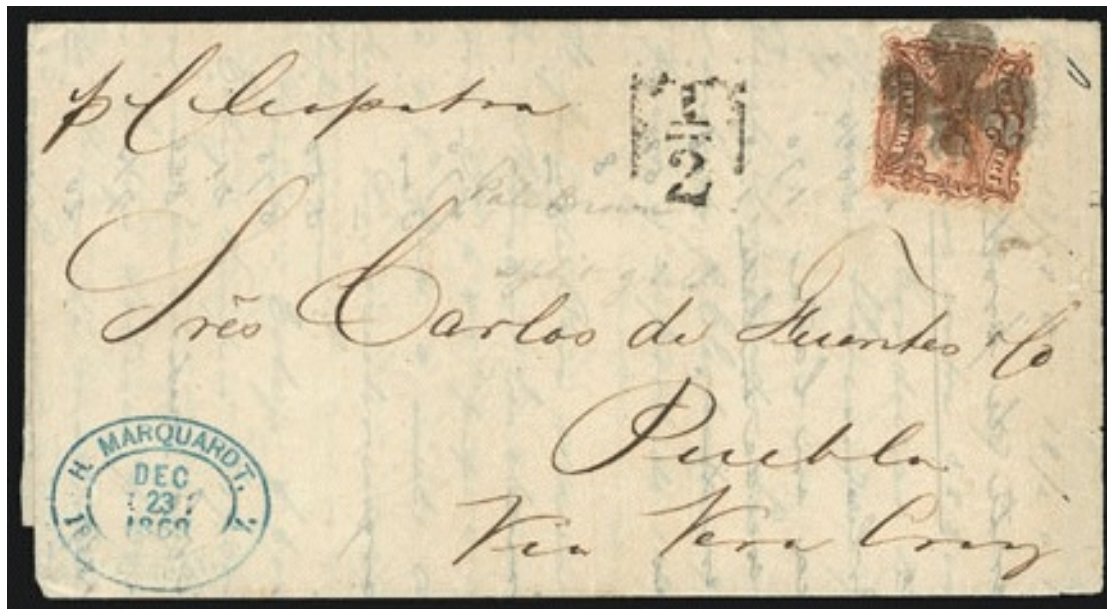 p Cleopatra
2½
Srēs Carlos de Fuentes Co
Puebla
Via Vera Cruz
H. MARQUARDT,
DEC
23
1869